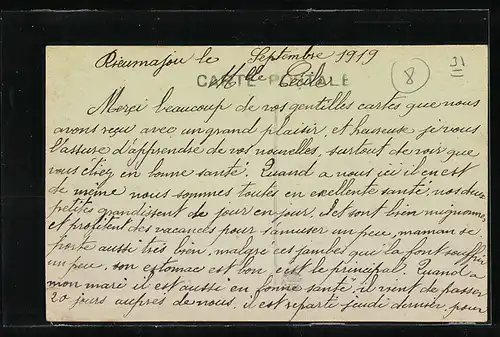 Rieumajou le Septembre 1919
Melle Cécile
CARTE POSTALE
8
Merci beaucoup de vos gentilles cartes que nous
avons reçu avec un grand plaisir et heureuse je vous
l'assure d'apprendre de vos nouvelles, surtout de voir que
vous étiez en bonne santé. Quand a nous ici il en est
de même nous sommes toutes en exellente santé, nos deux
petites grandissent de jour en jour, et sont bien mignonne,
et profitent des vacances pour s'amuser un peu, maman se
porte aussi très bien, malgré ces jambes qui la font souffrir
un peu, son estomac est bon c'est le principal. Quand a
mon mari il est aussi en bonne santé, il vient de passer
20 jours auprès de nous. il est reparti jeudi dernier, pour